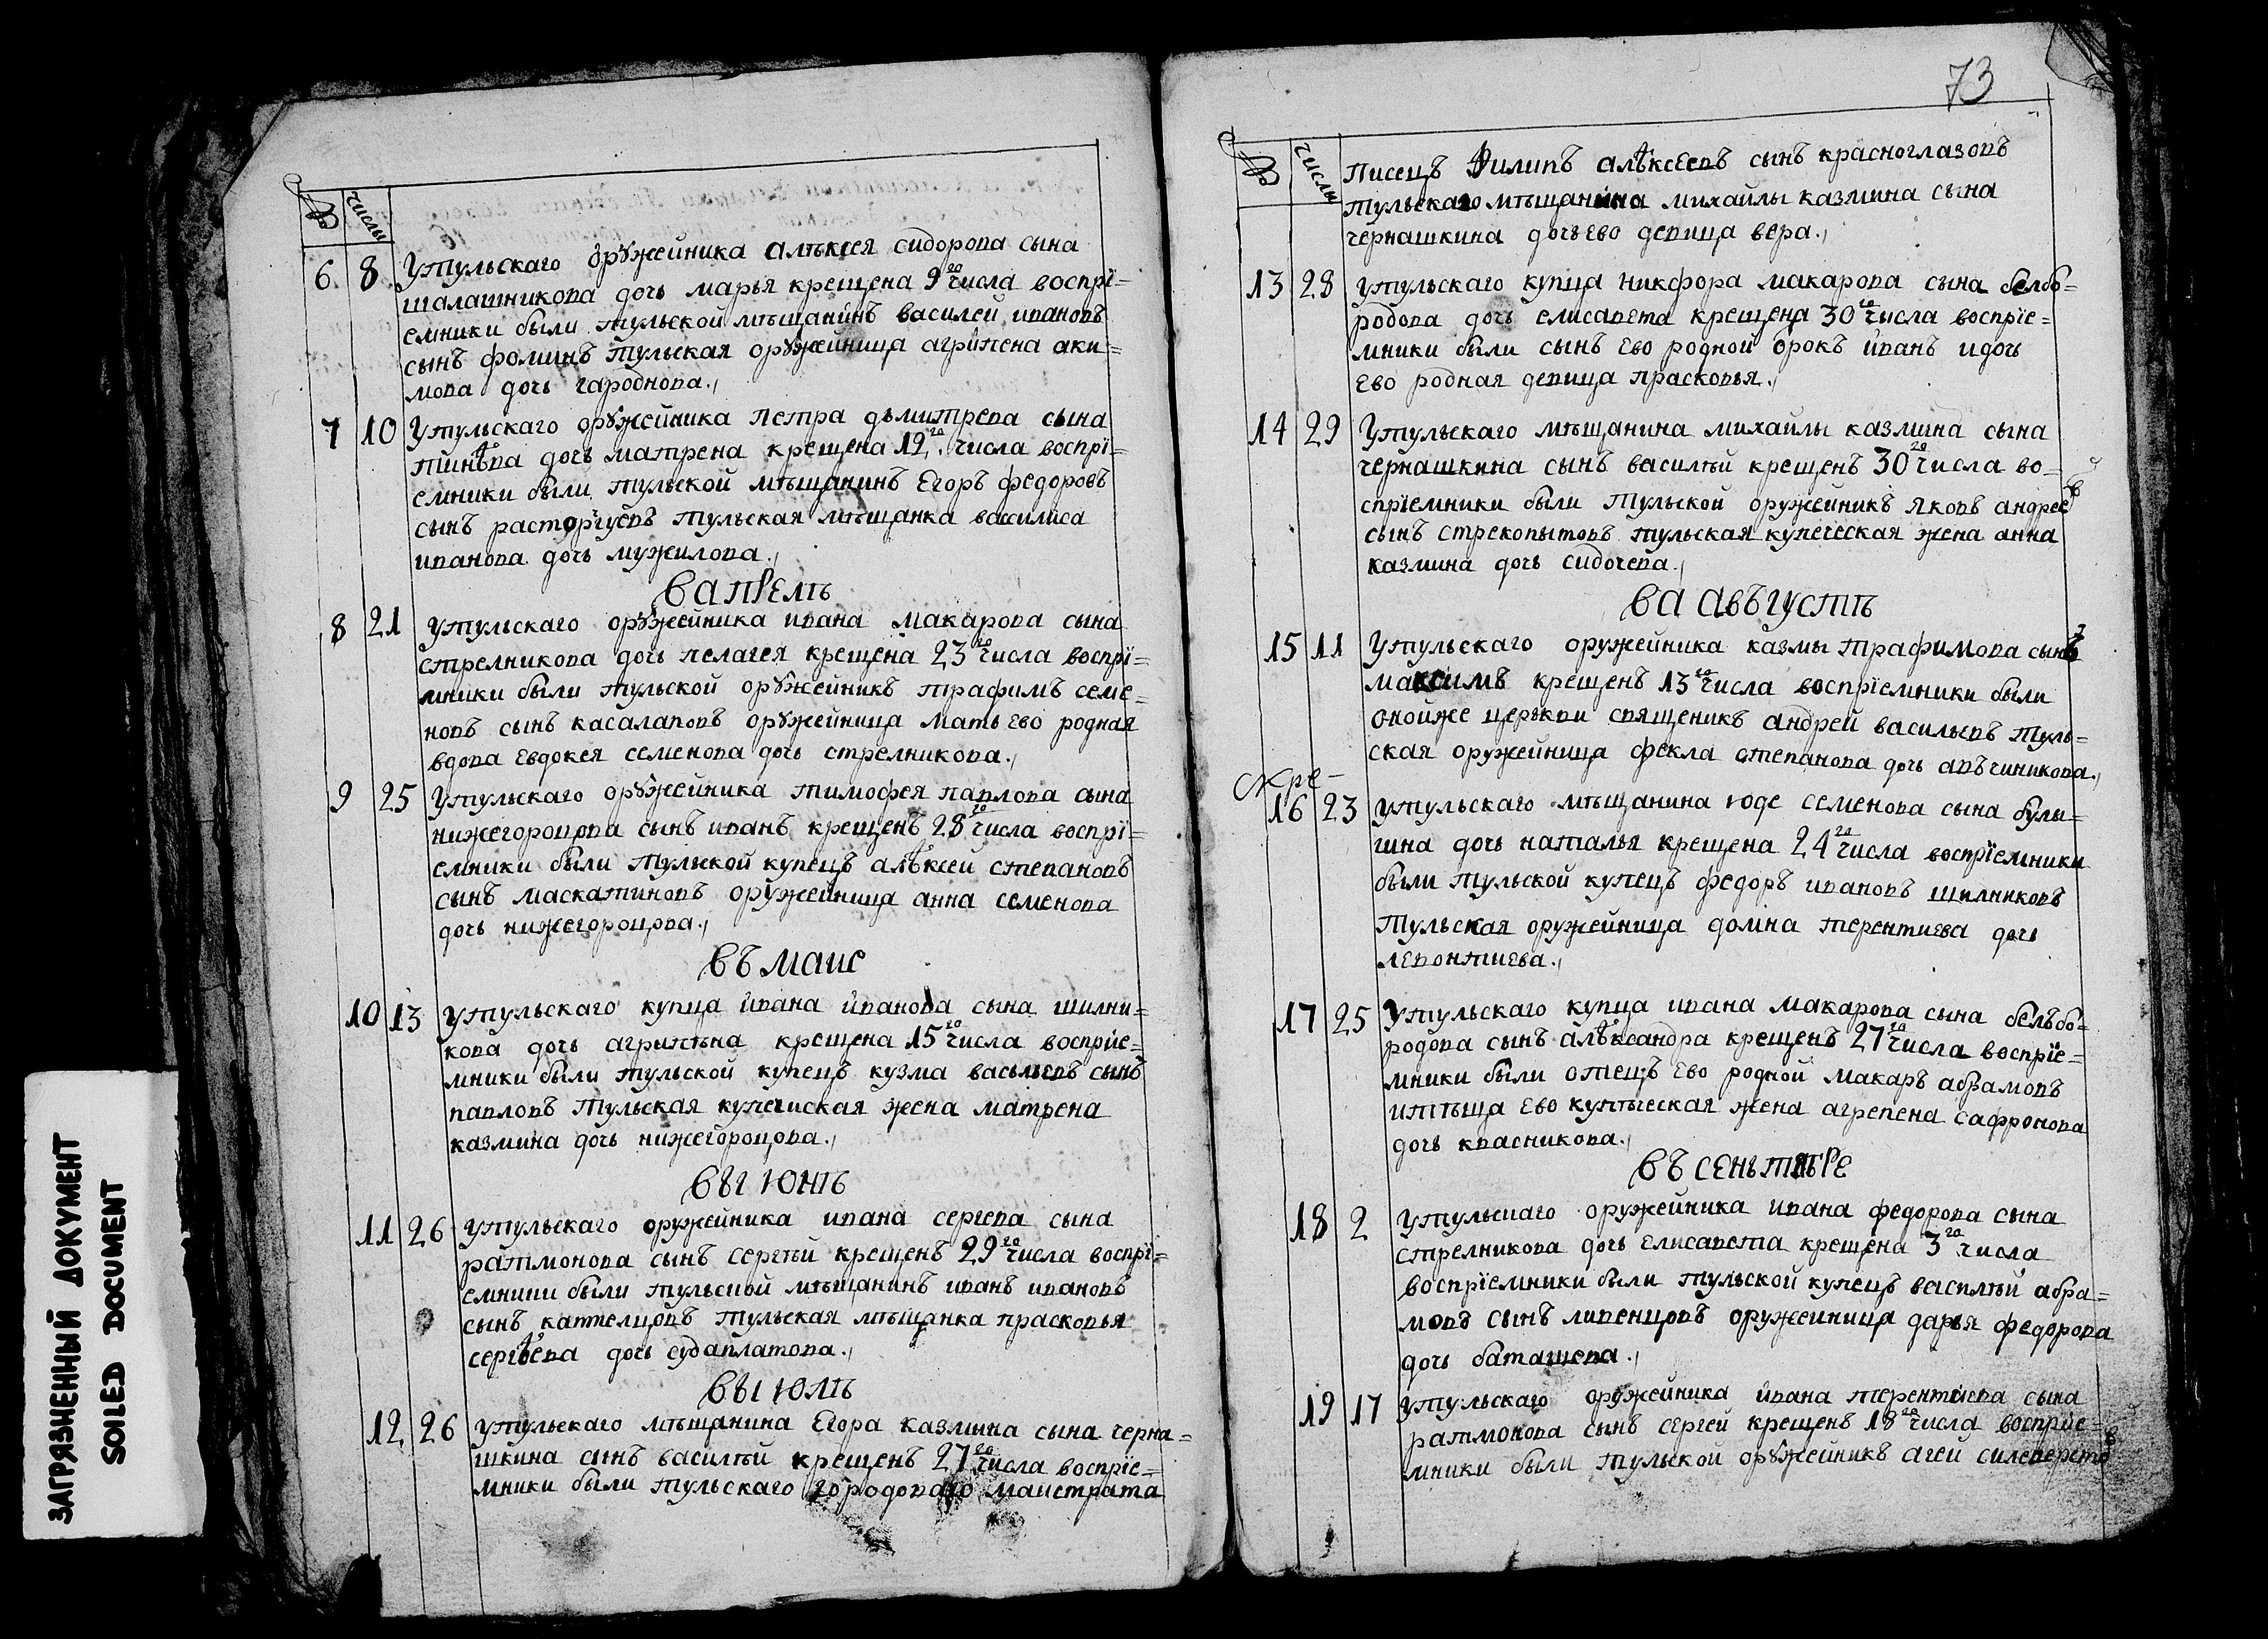 числы
6. 8 Утульскаго оружейника алѣксея сидорова сына
шалашникова дочь марья крещена 9го числа воспрї=
емники были тульской мѣщанинъ василей ивановъ
сынъ фоминъ тульская оружейница агрипена аки=
мова дочь гароднова.
7 10 Утульскаго оружейника петра дьмитрева сына
дочь матрена крещена 12го числа воспрї=
емники были тульской мѣщанинъ Егоръ федоровъ
сынъ расторгуевъ тульская мѣщанка василиса
иванова дочь мужилова.
в апрелѣ
8 21 Утульскаго оружейника ивана макарова сына
стрелникова дочь пелагея крещена 23го числа воспрї=
мники были тульской оружейникъ трафимъ семе=
новъ сынъ касалаповъ оружейница мать ево родная
вдова Евдокея семенова дочь стрелникова.
9 25 Утульскаго оружейника тимофея павлова сына
нижегороцова сынъ иванъ крещенъ 28го числа воспрї=
емники были тульской купецъ алѣксей степановъ
сынъ маскатиновъ оружейница анна семенова
дочь нижегороцова.
въ маие
10 13 Утульскаго купца ивана иванова сына шилни=
кова дочь агрипѣна крещена 15го числа восприе=
мники были тульской купецъ кузма васильевъ сынъ
павловъ тульская купечиская жена матрена
казмина дочь нижегороцова.
вы юнѣ
11 26 Утульскаго оружейника ивана сергева сына
ратмонова сынъ сергѣй крещенъ 29го числа воспрї=
емники были тульской мѣщанинъ иванъ ивановъ
сынъ каттелцовъ тульская мѣщанка прасковья
сергѣева дочь судаплатова.
вы юлѣ
12 26 Утульскаго мѣщанина Егора казмина сына черна=
шкина сынъ василѣй крещенъ 27го числа воспрїе=
мники были тульскаго городоваго маистрата
73
числы
писецъ Филипъ алѣксеевъ сынъ красноглазовъ
тульскаго мѣщанина михайлы казмина сына
чернашкина дочь ево девица вера.
13 28 Утульскаго купца никфора макарова сына белбо=
родова дочь елисавета крещена 30го числа воспрїе=
мники были сынъ Ево родной орокъ иванъ и дочь
Ево родная девица прасковья.
14 29 Утульскаго мѣщанина михайлы казмина сына
чернашкина сынъ василѣй крещенъ 30го числа во=
спрїемники были тульской оружейникъ яковъ андреевъ
сынъ стрекопытовъ тульская купеческая жена анна
казмина дочь сидочева.
ва авъгустѣ
15 11 Утульскаго оружейника казмы трафимова сынъ
максимъ крещенъ 13го числа воспрїемники были
оной же церькви священикъ андрей васильевъ туль=
ская оружейница фекла степанова дочь авъчиникова.
16 23 Утульскаго мѣщанина юде семенова сына булы=
гина дочь наталья крещена 24го числа воспрїемники
были тульской купецъ федоръ ивановъ шилниковъ
тульская оружейница домна терентиева дочь
левонтиева.
17 25 Утульскаго купца ивана макарова сына белъбо=
родова сынъ алѣксандра крещенъ 27го числа воспрїе=
мники были отецъ Ево родной макаръ абрамовъ
итѣща Ево купѣческая жена агрепена сафронова
дочь квасникова.
въ сеньтябре
18 2 Утульскаго оружейника ивана федорова сына
стрелникова дочь елисавета крещена 3го числа
воспрїемники были тульской купецъ василѣй абра=
мовъ сынъ ливенцовъ оружейница дарья федорова
дочь баташева.
19 17 Утульскаго оружейника ивана терентиева сына
ратмонова сынъ сергей крещенъ 18го числа восприе=
мники были тульской оружейникъ агей
ЗАГРЯЗНЕННЫЙ ДОКУМЕНТ
SOILED DOCUMENT